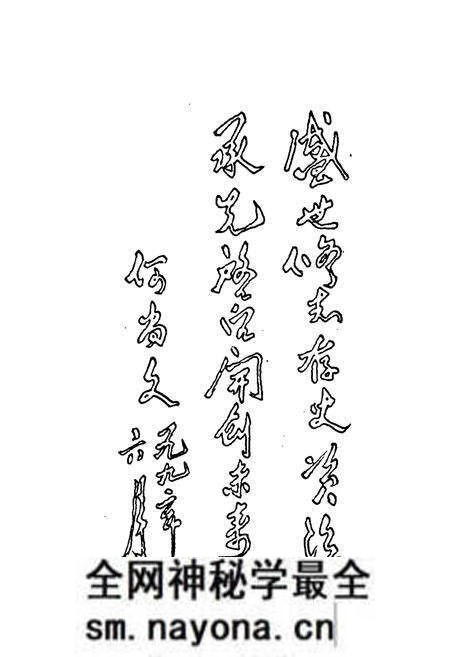 盛世修志存史资治
承先启后開创未来
何尚文
六月
全网神秘学最全
sm.nayona.cn